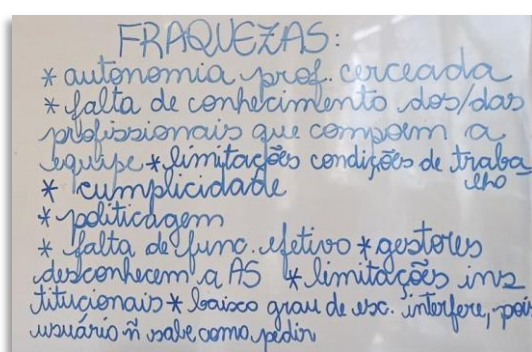 FRAQUEZAS:
* autonomia prof. cerceada
* falta de conhecimento dos/das
profissionais que compoem a
equipe * limitações condições de traba
lho
* cumplicidade
* politicagem
* falta de func. efetivo * gestores
desconhecem a AS * limitações ins
titucionais * baixo grau de esc. interfere, pois
usuário ñ sabe como pedir